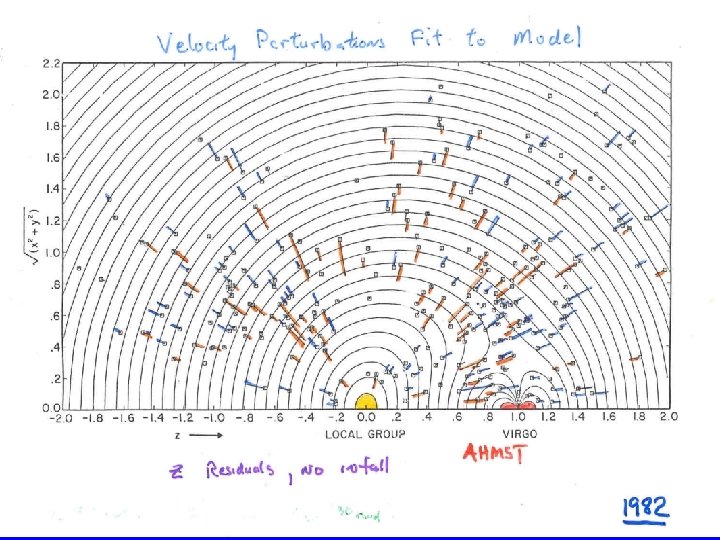 Velocity Perturbations Fit to Model
2.2
2.0
1.8
1.6
1.4
1.2
1.0
.8
.6
.4
.2
0.0
√(x² + y²)
-2.0 -1.8 -1.6 -1.4 -1.2 -1.0 -.8 -.6 -.4 -.2 0.0 .2 .4 .6 .8 1.0 1.2 1.4 1.6 1.8 2.0
z → LOCAL GROUP VIRGO
AHMST
z Residuals, no infall
1982